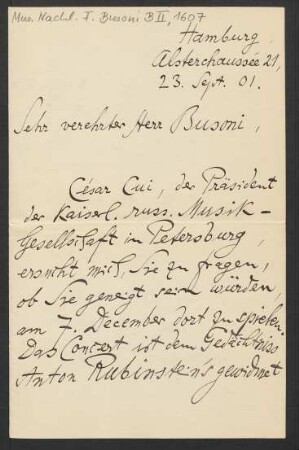 Mus. Nachl. F. Busoni B II, 1697
Hamburg,
Alsterchaussée 21,
23. Sept. 01.
Sehr verehrter Herr Busoni,
César Cui, der Präsident
der Kaiserl. russ. Musik-
Gesellschaft in Petersburg,
ersucht mich, Sie zu fragen,
ob Sie geneigt sein würden,
am 7. December dort zu spielen.
Das Concert ist dem Gedächtniss
Anton Rubinsteins gewidmet